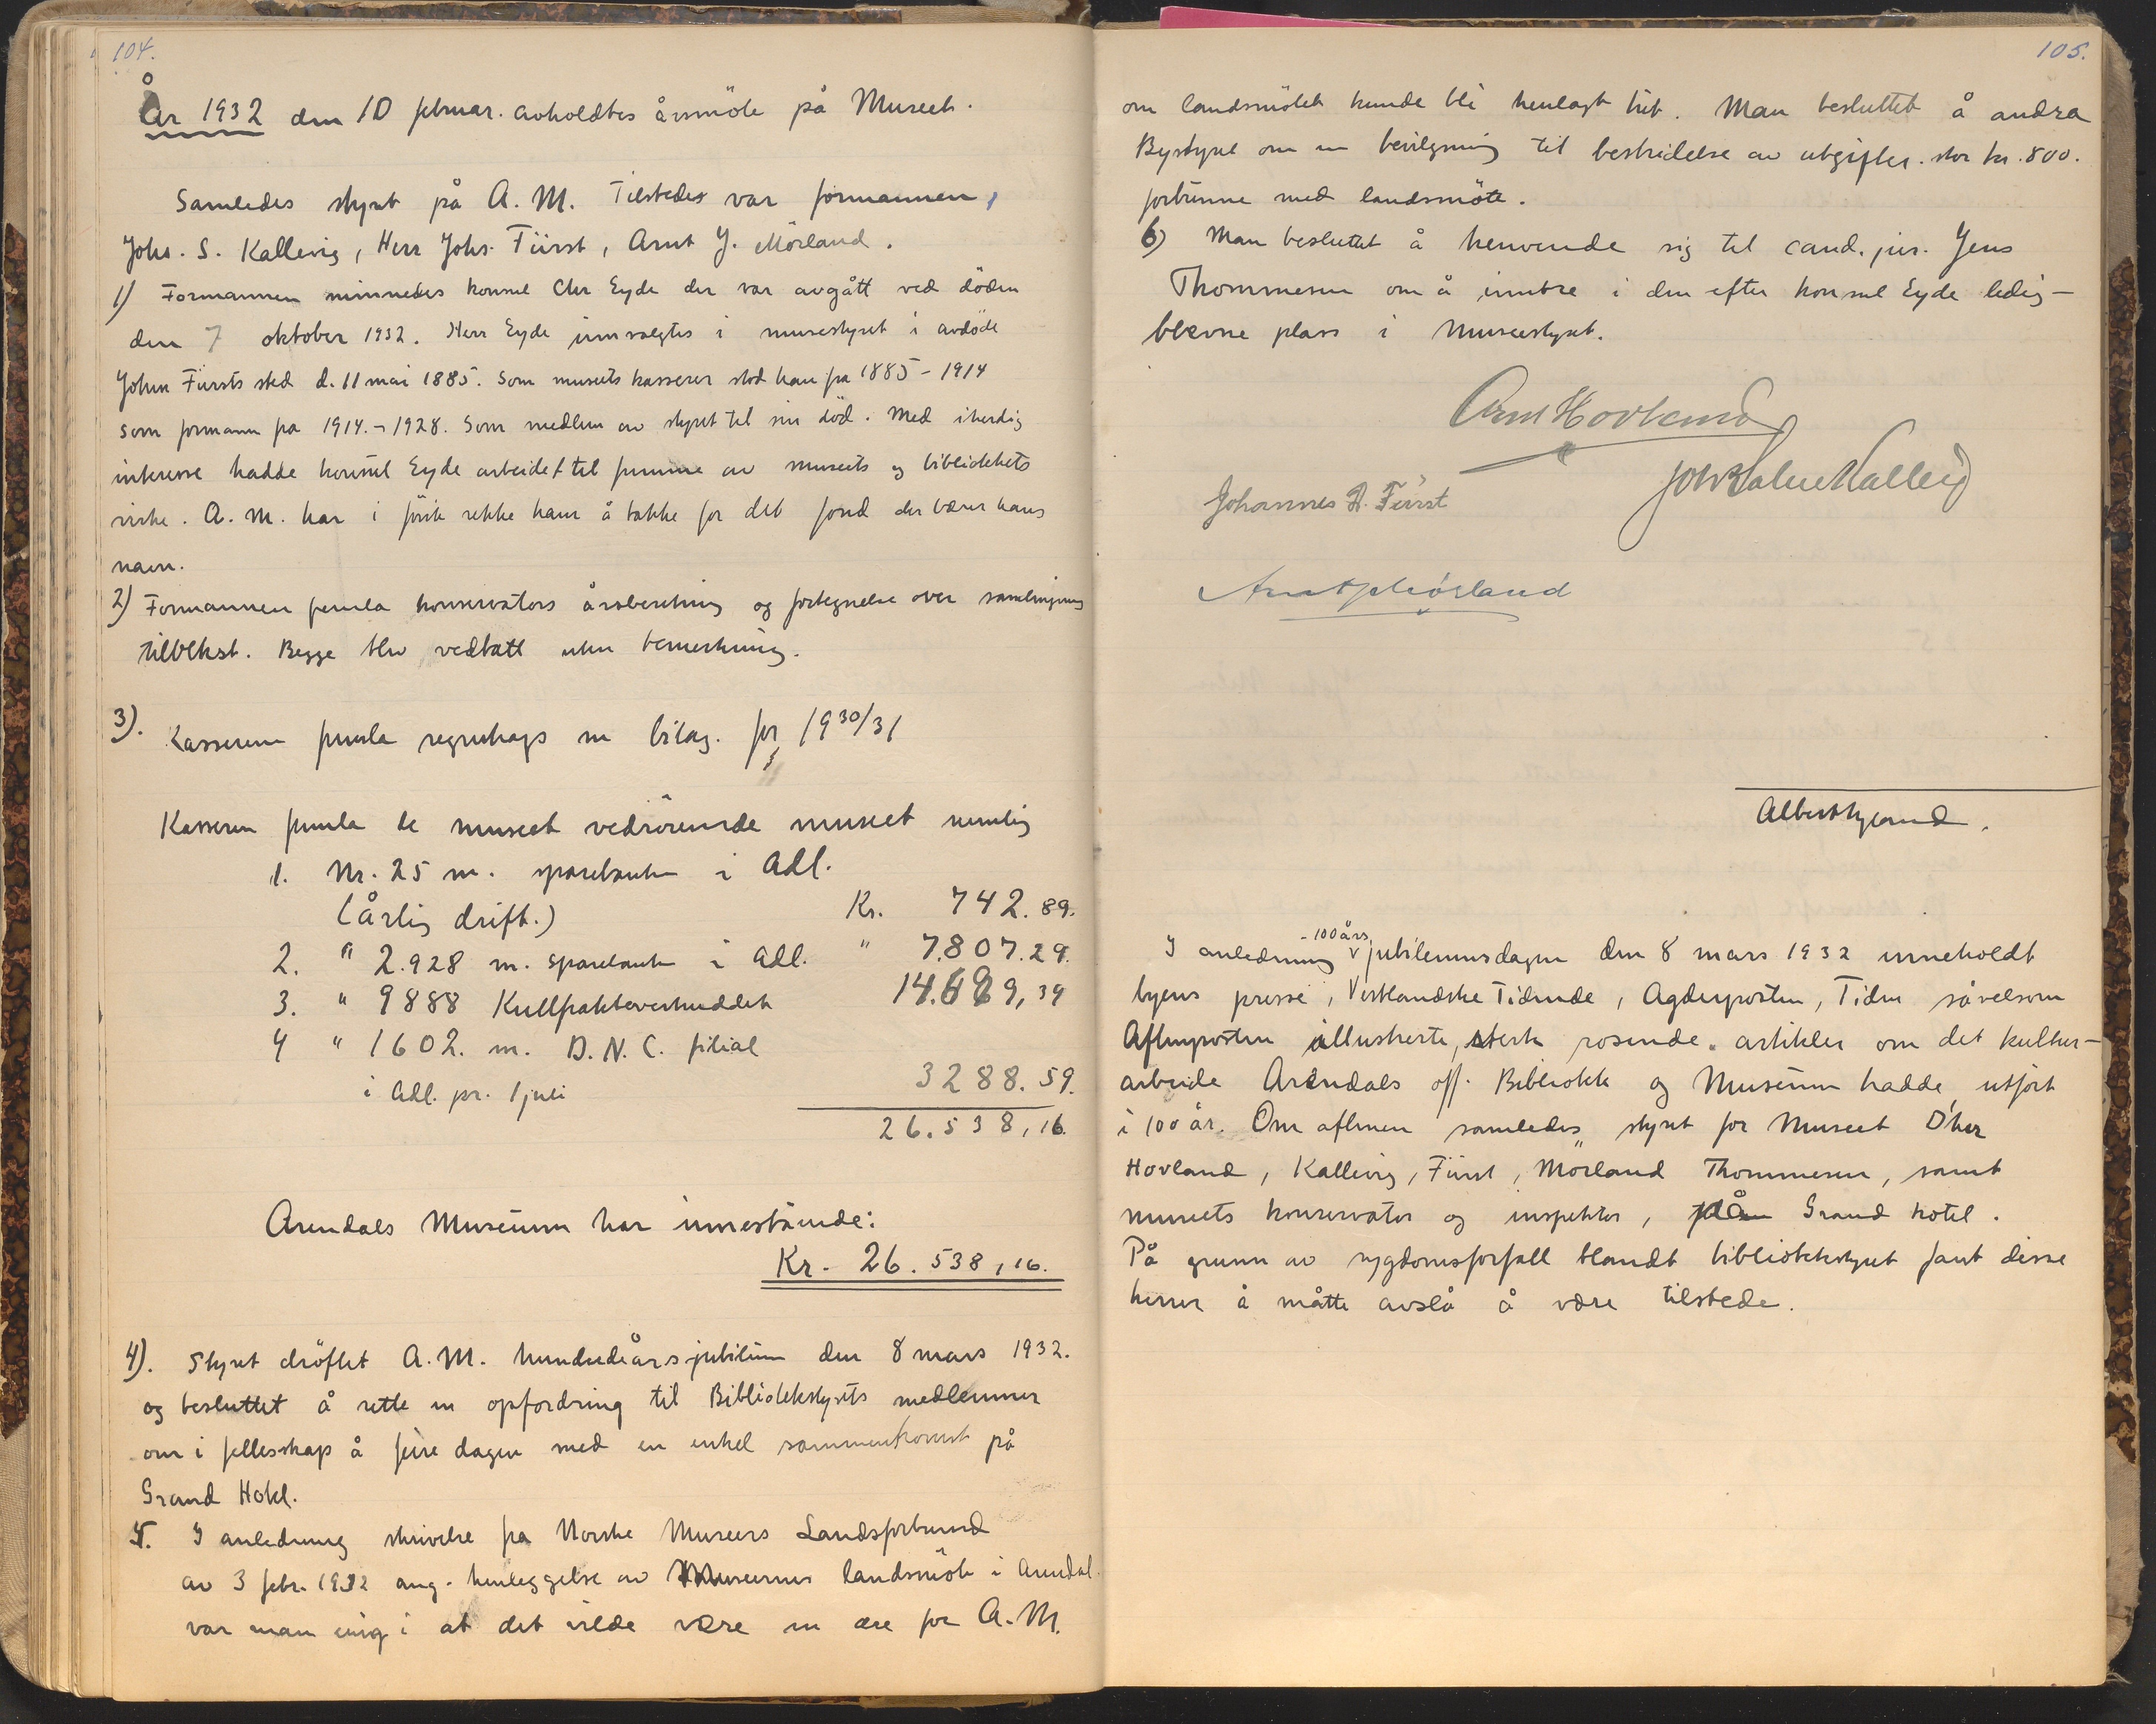 104.
År 1932 den 10 februar. avholdtes årsmöte på Museet.
Samledes styret på A. M. Tilstedes var formannen,
Johs. S. Kallevig, Herr Johs. Fürst, Arnt J. Mörland.
1) Formannen minnedes konsul Chr Eyde der var avgått ved döden
den 7 oktober 1932. Herr Eyde innvalgtes i musestyret i avdöde
John Fürsts sted d. 11 mai 1885. Som museets kasserer stod han fra 1885 - 1914
som formann fra 1914. - 1928. Som medlem av styret til sin död. Med iherdig
interesse hadde konsul Eyde arbeidet til fremme av museets og bibliotekets
virke. A. M. har i förste rekke ham å takke for det fond der bærer hans
navn.
2) Formannen fremla konservators årsberetning og fortegnelse over samlingens
tilvekst. Begge blev vedtatt uten bemerkning.
3). Kassereren fremla regnskaps m bilag. for 1930/31
Kasseren fremla de museet vedrörende museet nemlig
1. Nr. 25 m. sparebanken i Adl.
(årlig drift.) Kr. 742.89.
2. " 2.928 m. sparebanken i Adl. " 7.807.29.
3. " 9888 14.699,39
4 " 1602. m. D. N. C. filial
i Adl. pr. 1 juli 3288.59.
26.538,16.
Arendals Museum har innestående:
Kr. 26.538,16.
4). Styret dröftet A. M. hundredårsjubileum den 8 mars 1932.
og besluttet å rette en opfordring til Bibliotekstyrets medlemmer
om i fellesskap å feire dagen med en enkel sammenkomst på
Grand Hotel.
5. I anledning skrivelse fra Norske Museers Landsforbund
av 3 febr. 1932 ang. henleggelse av Museernes landsmöte i Arendal.
var man enig i at det vilde være en ære for A. M.
105.
om landsmötet kunde bli henlagt hit. Man besluttet å andra
Bystyret om en bevilgning til bestridelse av utgifter. stor kr. 800.
forbunne med landsmöte.
6) Man besluttet å henvende sig til cand. jur. Jens
Thommesen om å inntre i den efter konsul Eyde ledig-
blevne plass i Museestyret.
Arnt Hovland
Johs Kallevig
Johannes A. Fürst
Arnt J Mörland
I anledning - 100 års jubileumsdagen den 8 mars 1932 inneholdt
byens presse, Vestlandske Tidende, Agderposten, Tiden såvelsom
Aftenposten illusterte, sterk rosende artikler om det kultur-
arbeide Arendals off. Bibliotek og Museum hadde utfört
i 100 år. Om aftenen samledes styret for Museet D'her
Hovland, Kallevig, Fürst, Mörland Thommesen, samt
museets konservator og inspektör, på Grand hotel.
På grunn av sygdomsforfall blandt bibliotekstyret fant disse
herrer å måtte avslå å være tilstede.